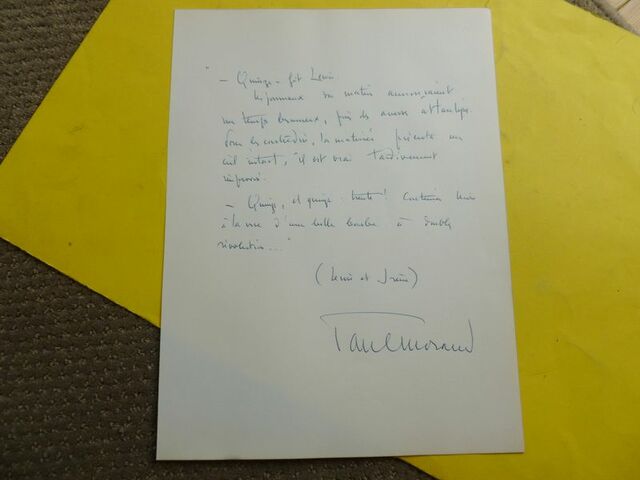 " — Quinze - fit Lewis.
Les journaux du matin annonçaient
un temps brumeux, près des
Pour les contredire, la matinée présenta un
ciel intact, il est vrai tardivement
— Quinze, et quinze : trente ! Lewis
à la vue d'une belle bombe à double
révolution..."
(Lewis et Irène)
Paul Morand